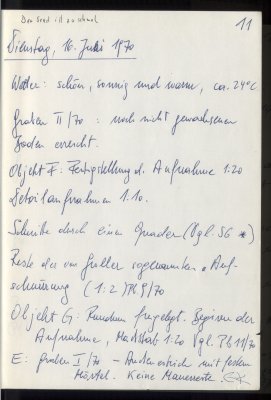 Der Sand ist zu schmal
11
Dienstag, 16. Juni 1970
Wetter: schön, sonnig und warm, ca. 24°C
Graben II/70 : noch nicht gewachsenen
Boden erreicht.
Objekt F: Fertigstellung d. Aufnahme 1:20
Detailaufnahmen 1:10.
Schnitte durch einen Quader (Vgl. S6 *)
Reste der von Galler sogenannten "Auf-
schnürung (1:2) Pl 9/70
Objekt G: Rundum freigelegt. Beginn der
Aufnahme, Maßstab 1:20 Vgl. Pl 11/70
E: Graben I/70 - Anderestrich mit festem
Mörtel. Keine Mauerreste.